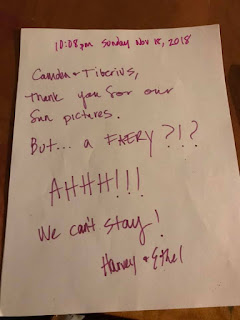 10:08pm Sunday Nov 18, 2018
Camden & Tiberius,
Thank you for our
fun pictures.
But... a FAERY?!?
AHHH!!!
We can't stay!
Harvey & Ethel